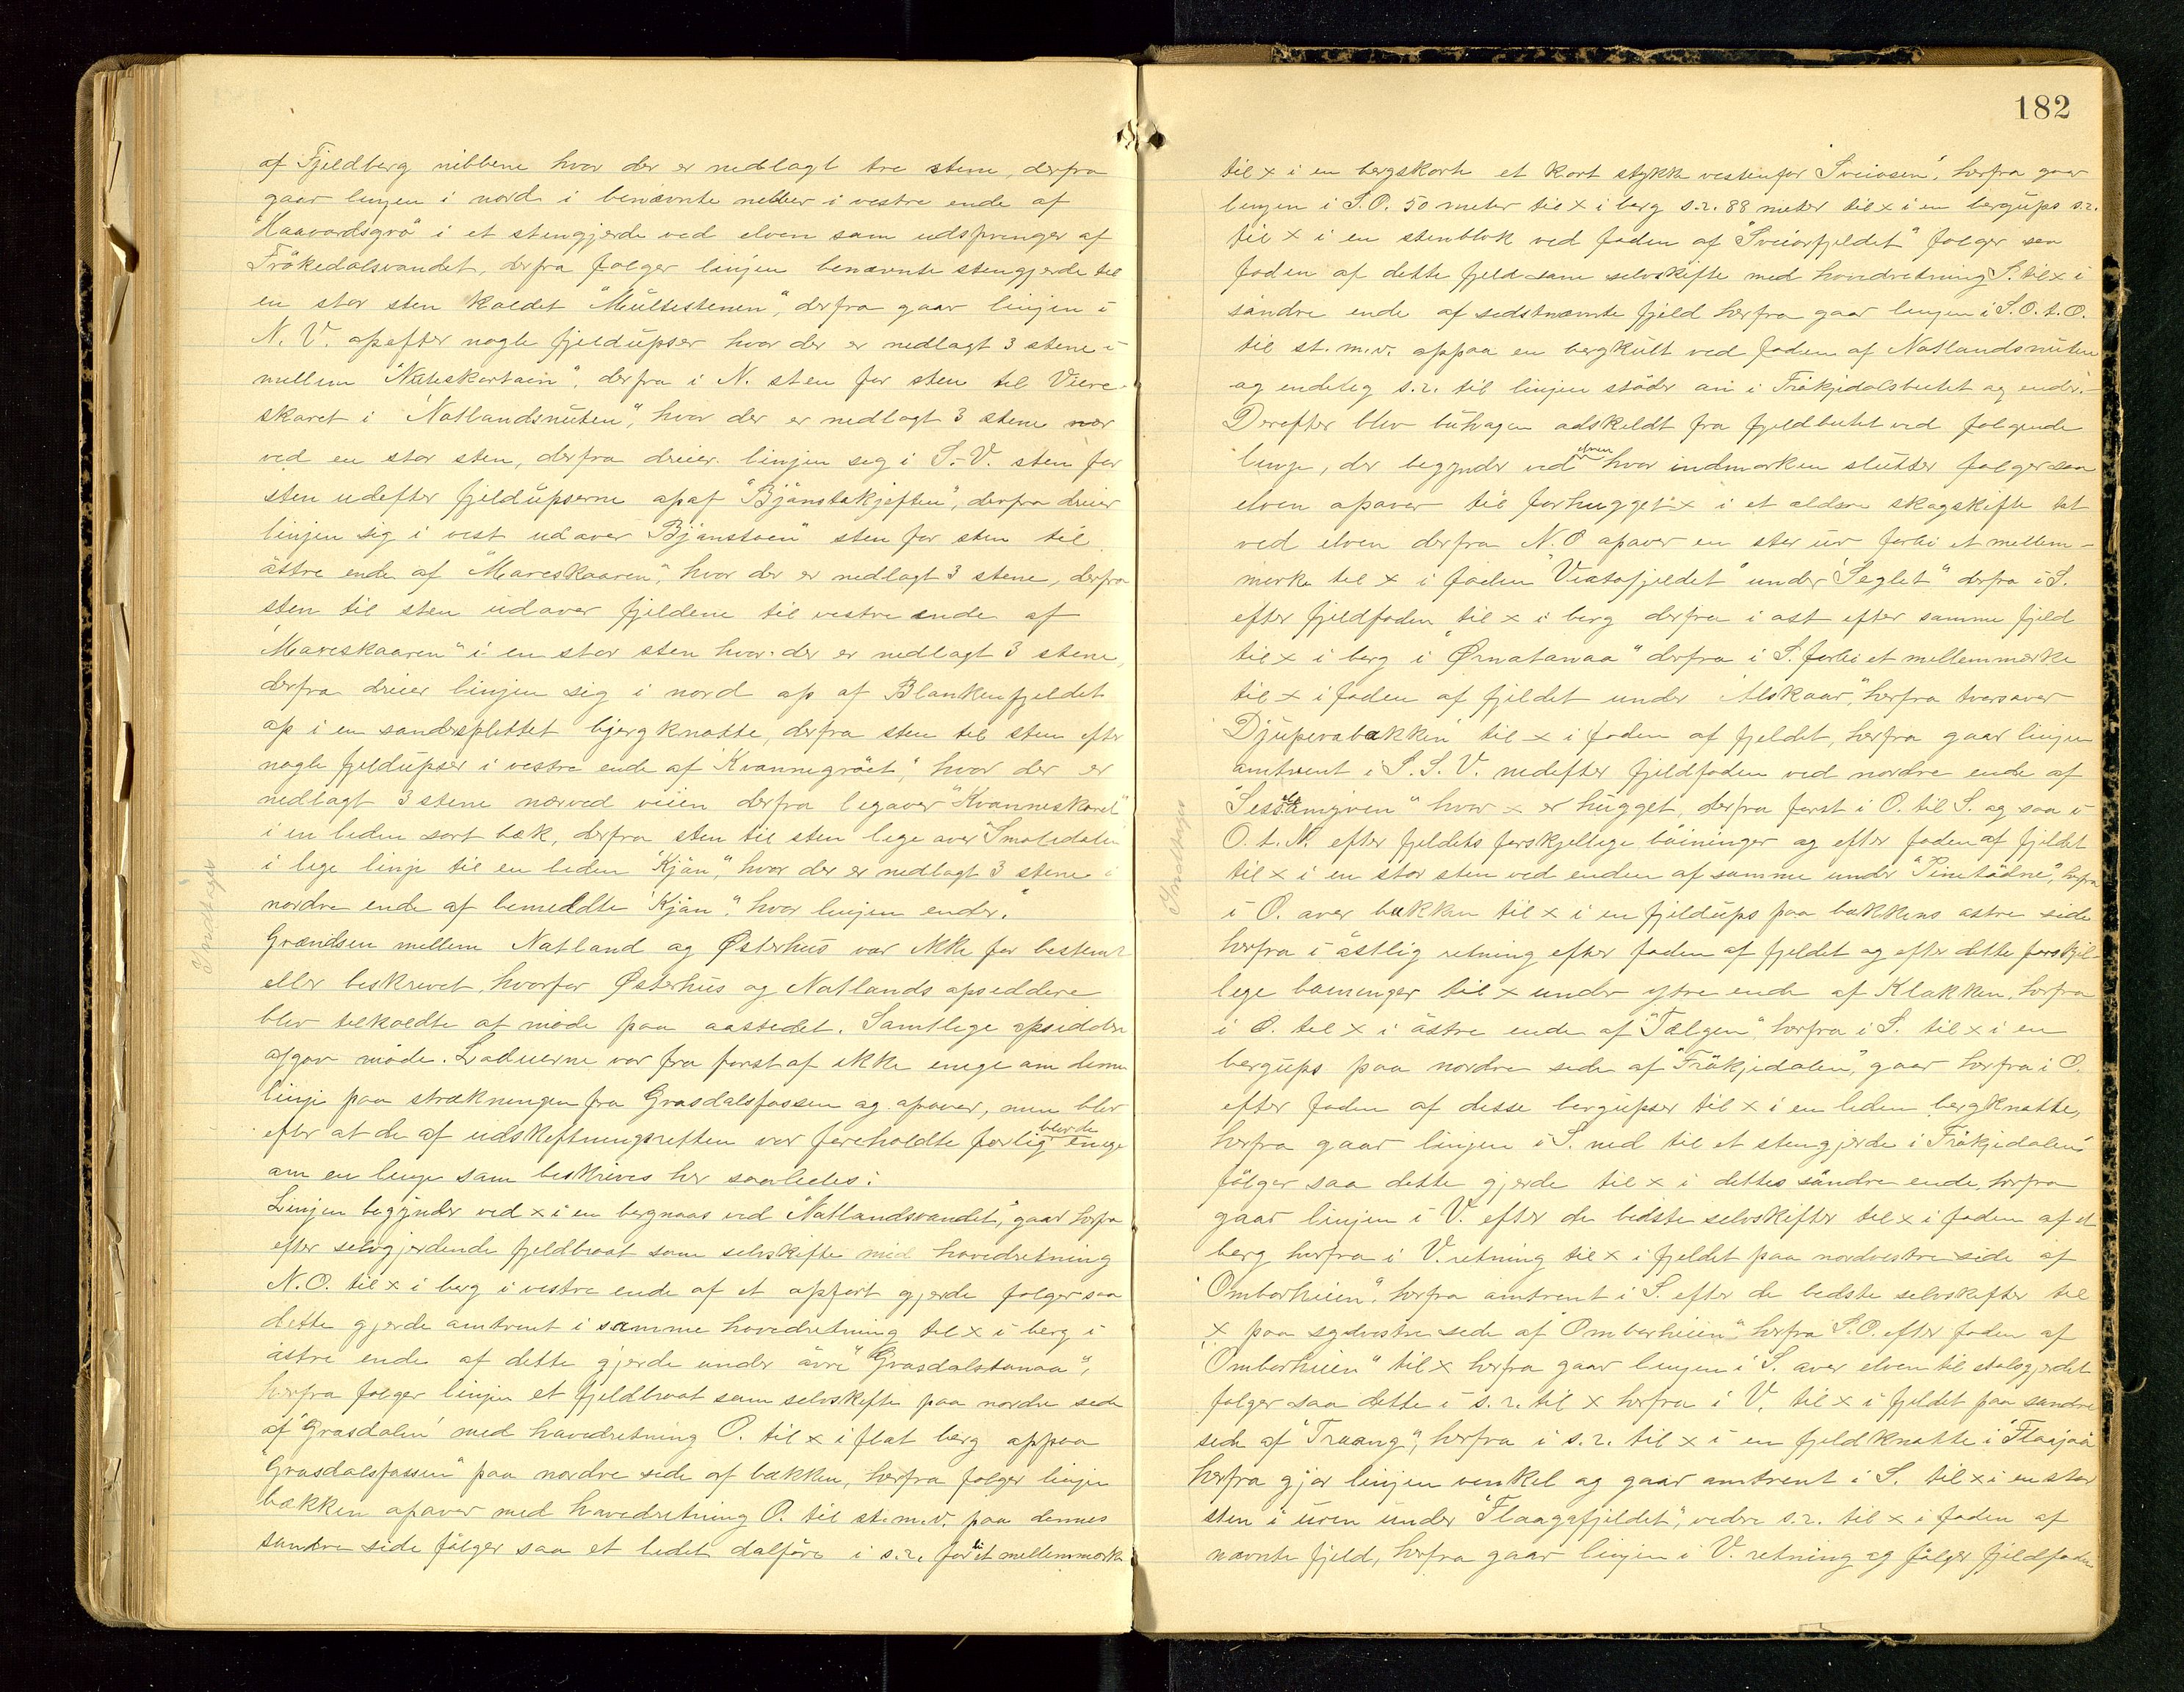 af Fjeldberg nibbene hvor der er nedlagt tre stene, derfra
gaar linjen i nord i benævnte nebber i vestre ende af
"Haavardsgrö" i et stengjerde ved elven som udspringer af
Frökedalsvandet, derfra følger linjen benævnte stengjerde til
en stor sten kaldet "Multestenen", derfra gaar linjen i
N. V. opefter nogle fjeldupser hvor der er nedlagt 3 stene i
mellem "Nuteskortain", derfra i N. sten for sten til Viere-
skaret i "Natlandsnuten", hvor der er nedlagt 3 stene nær
ved en stor sten, derfra dreier linjen sig i S.-V. sten for
sten udefter fjeldupserne opaf "Bjönstokjeften", derfra dreier
linjen sig i vest udover "Bjönstoen" sten for sten til
östre ende af "Mareskaaren", hvor der er nedlagt 3 stene, derfra
sten til sten udover fjeldene til vestre ende af
"Mareskaaren" i en stor sten hvor der er nedlagt 3 stene,
derfra dreier linjen sig i nord op af Blankenfjeldet
op i en søndersplittet bjergknatte, derfra sten til sten efter
nogle fjeldupser i vestre ende af "Kvannegröet", hvor der er
nedlagt 3 stene nærved veien derfra ligeover "Kvanneskaret"
i en liden sort bæk, derfra sten til sten lige over Smaledalen
i lige linje til en liden "Kjön", hvor der er nedlagt 3 stene i
nordre ende af bemeldte "Kjön", hvor linjen ender."
Grændsen mellem Natland og Østerhus var ikke før bestemt
eller beskrevet, hvorfor Østerhus og Natlands opsiddere
blev tilkaldte at møde paa aastedet. Samtlige opsiddere
afgav møde. Lodeierne var fra først af ikke enige om denne
linje paa strækningen fra Grasdalsfossen og opover, men blev
efter at de af udskiftningsretten var foreholdte forlig blev de enige
om en linje som beskrives her saaledes:
Linjen begynder ved x i en bergnaas ved "Natlandsvandet", gaar herfra
efter selvgjerdende fjeldbraat som selvskifte med hovedretning
N.O. til x i berg i vestre ende af et opført gjerde følger saa
dette gjerde omtrent i samme hovedretning til x i berg i
östre ende af dette gjerde under övre "Grasdalstanaa",
herfra følger linjen et fjeldbraat som selvskifte paa nordre side
af "Grasdalen" med hovedretning O. til x i flat berg oppaa
"Grasdalsfossen" paa nordre side af bækken, herfra følger linjen
bækken opover med hovedretning O. til st.m.v. paa dennes
søndre side følger saa et lidet dalføre i s.r. forbi et mellemmærke
Indtaget
182
til x i en bergskorte et kort stykke vestenfor "Sveiosen", herfra gaar
linjen i S.O. 50 meter til x i berg s.r. 88 meter til x i en bergups s.r.
til x i en stenblok ved foden af "Sveiorfjeldet" følger saa
foden af dette fjeld som selvskifte med hovedretning S. til x i
søndre ende af sidstnævnte fjeld herfra gaar linjen i S.O.t.O.
til st.m.v. oppaa en bergkult ved foden af Natlandsnuten
og endelig s.r. til linjen støder an i Frökjedalsbeitet og ender.-
Derefter blev buhagen adskeldt fra fjeldbeitet ved følgende
linje, der begynder ved elven hvor indmarken slutter følger saa
elven opover til forhugget x i et ældre skogskifte tæt
ved elven derfra N.O opover en stor ur forbi et mellem-
merke til x i foden "Veatofjeldet" under "Seglet" derfra i S.
efter fjeldfoden til x i berg derfra i øst efter samme fjeld
til x i berg i "Ørnatanaa" derfra i S. forbi et mellemmærke
til x i foden af fjeldet under "Alskaar", herfra tversover
"Djupevabækken" til x i foden af fjeldet, herfra gaar linjen
omtrent i S.S.V. nedefter fjeldfoden ved nordre ende af
hvor x er hugget, derfra først i O. til S. og saa i
O.t.N. efter fjeldets forskjellige böininger og efter foden af fjeldet
til x i en stor sten ved enden af samme under herfra
i O. over bækken til x i en fjeldups paa bækkens østre side
herfra i østlig retning efter foden af fjeldet og efter dette forskjel-
lige böininger til x under ytre ende af Klakken, herfra
i O. til x i östre ende af "Tælgen" herfra i S. til x i en
bergups paa nordre side af "Frökjedalen", gaar herfra i O.
efter foden af disse bergupser til x i en liden bergknatte,
herfra gaar linjen i S. ned til et stengjerde i "Frökjedalen"
følger saa dette gjerde til x i dettes søndre ende, herfra
gaar linjen i V. efter de bedste selvskifter til x i foden af et
berg herfra i V. retning til x i fjeldet paa nordvestre side af
"Omborheien", herfra omtrent i S. efter de bedste selvskifter til
x paa sydvestre side af "Omborheien" herfra S.O. efter foden af
"Omborheien" til x herfra gaar linjen i S. over elven til stølsgjerdet
følger saa dette i s.r. til x herfra i V. til x i fjeldet paa søndre
side af "Traang", herfra i s.r. til x i en fjeldknatte i "Flaajaa"
herfra gjør linjen venkel og gaar omtrent i S. til x i en stor
sten i uren under "Flaagafjeldet", videre s.r. til x i foden af
nævnte fjeld, herfra gaar linjen i V. retning og følger fjeldfoden
Indtaget